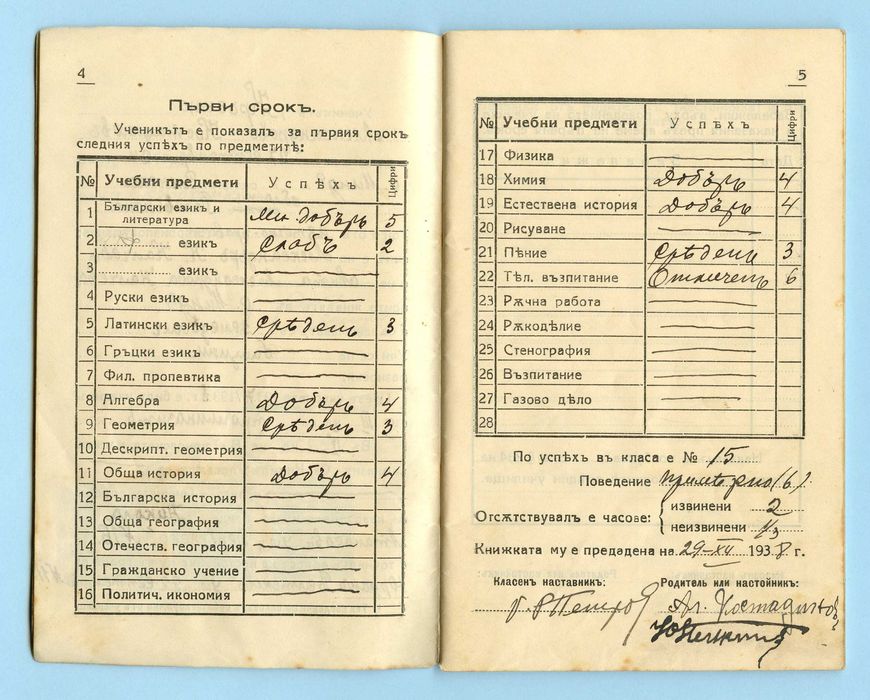 4
Първи срокъ.
Ученикътъ е показалъ за първия срокъ
следния успѣхъ по предметитѣ:
№ Учебни предмети Успѣхъ Цифри
1 Български езикъ и литература Мн. добъръ 5
2 езикъ Слабъ 2
3 езикъ
4 Руски езикъ
5 Латински езикъ Срѣденъ 3
6 Гръцки езикъ
7 Фил. пропевтика
8 Алгебра Добъръ 4
9 Геометрия Срѣденъ 3
10 Дескрипт. геометрия
11 Обща история Добъръ 4
12 Българска история
13 Обща география
14 Отечеств. география
15 Гражданско учение
16 Политич. икономия
5
№ Учебни предмети Успѣхъ Цифри
17 Физика
18 Химия Добъръ 4
19 Естествена история Добъръ 4
20 Рисуване
21 Пѣние Срѣденъ 3
22 Тѣл. възпитание Отличенъ 6
23 Рѫчна работа
24 Рѫкодѣлие
25 Стенография
26 Възпитание
27 Газово дѣло
28
По успѣхъ въ класа е № 15
Поведение примѣрно (6)
Отсѫтствувалъ е часове: извинени 2
неизвинени 1/3
Книжката му е предадена на 29-XII 1938 г.
Класенъ наставникъ: Родитель или настойникъ: